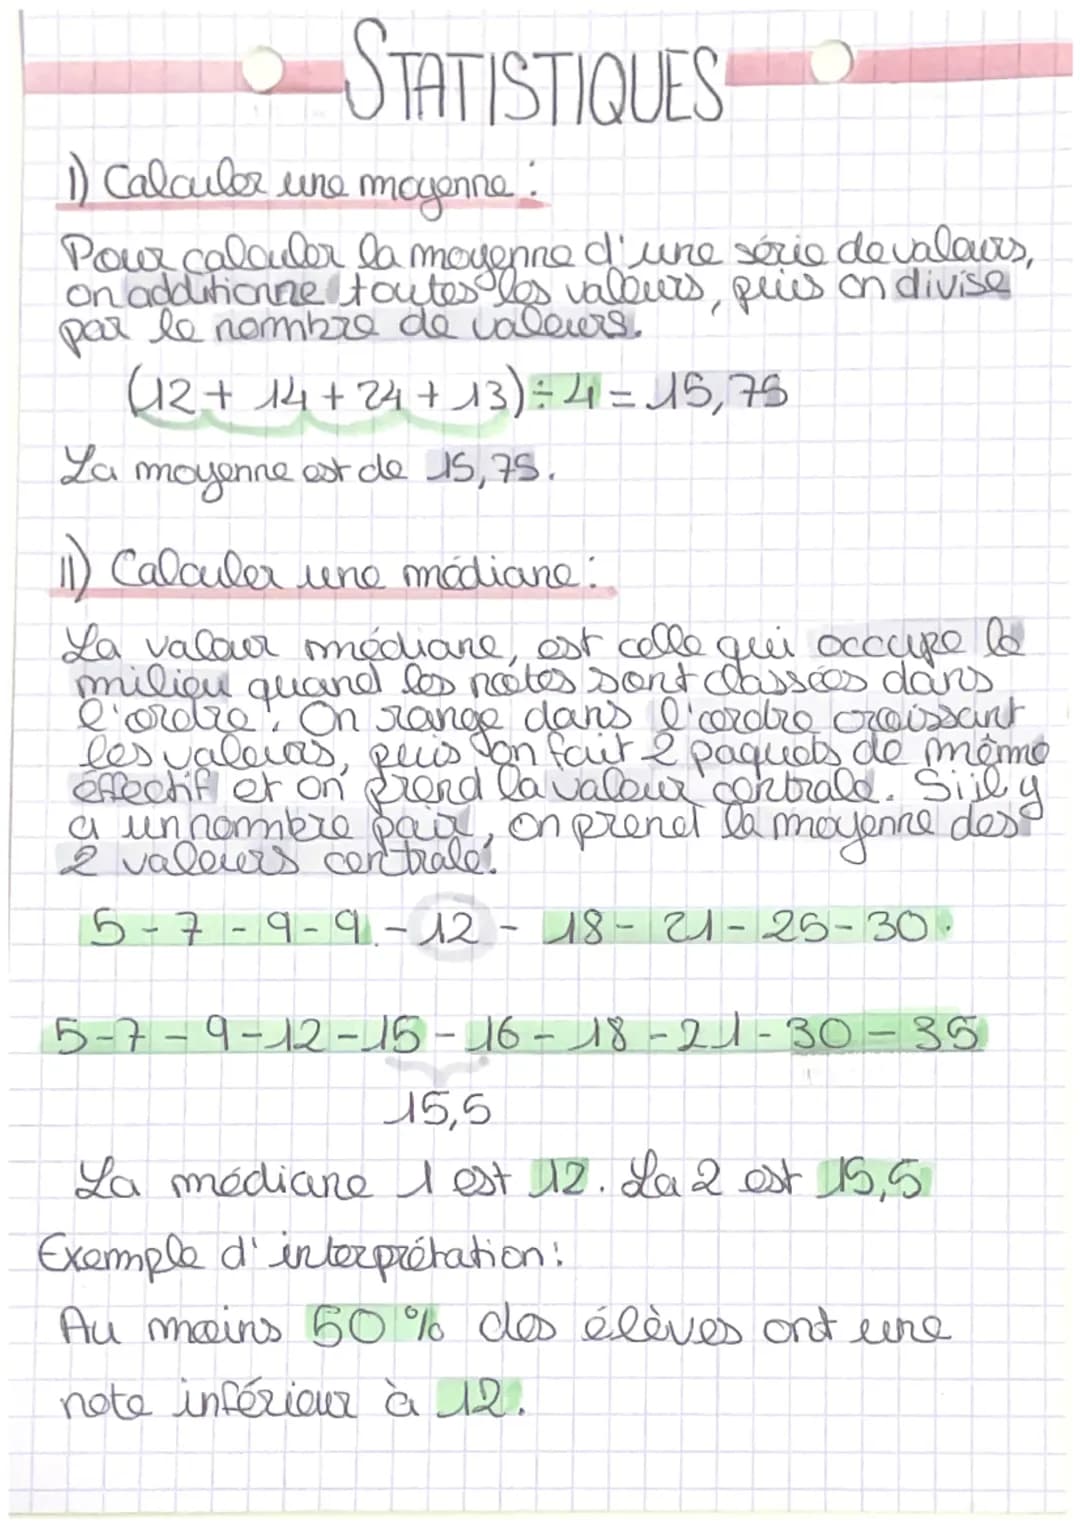 STATISTIQUES
I) Calculer une moyenne :
Pour calculer la moyenne d'une série de valeurs,
on additionne toutes les valeurs, puis on divise
par le nombre de valeurs.
(12 + 14 + 24 + 13) ÷ 4 = 15,75
La moyenne est de 15,75.
II) Calculer une médiane :
La valeur médiane, est celle qui occupe le
milieu quand les notes sont classées dans
l'ordre. On range dans l'ordre croissant
les valeurs, puis on fait 2 paquets de même
effectif et on prend la valeur centrale. Si il y
a un nombre pair, on prend la moyenne des
2 valeurs centrale.
5 - 7 - 9 - 9 - 12 - 18 - 21 - 25 - 30.
5 - 7 - 9 - 12 - 15 - 16 - 18 - 21 - 30 - 35
15,5
La médiane 1 est 12. La 2 est 15,5
Exemple d'interprétation :
Au moins 50 % des élèves ont une
note inférieur à 12.